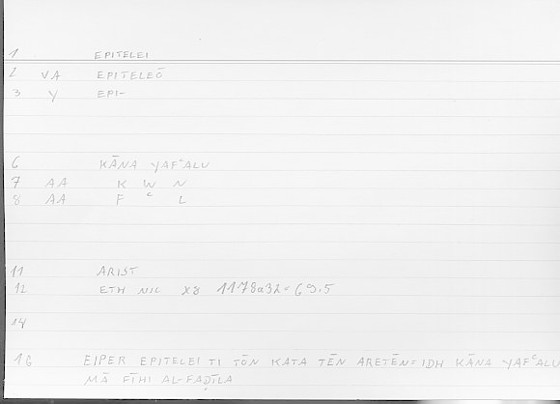 1 EPITELEI
2 VA EPITELEŌ
3 Y EPI-
6 KĀNA YAFʿALU
7 AA K W N
8 AA F ʿ L
11 ARIST
12 ETH NIC X8 1178a32=69.5
14
16 EIPER EPITELEI TI TŌN KATA TĒN ARETĒN=IDH KĀNA YAFʿALU
MĀ FĪHI AL-FAḌĪLA